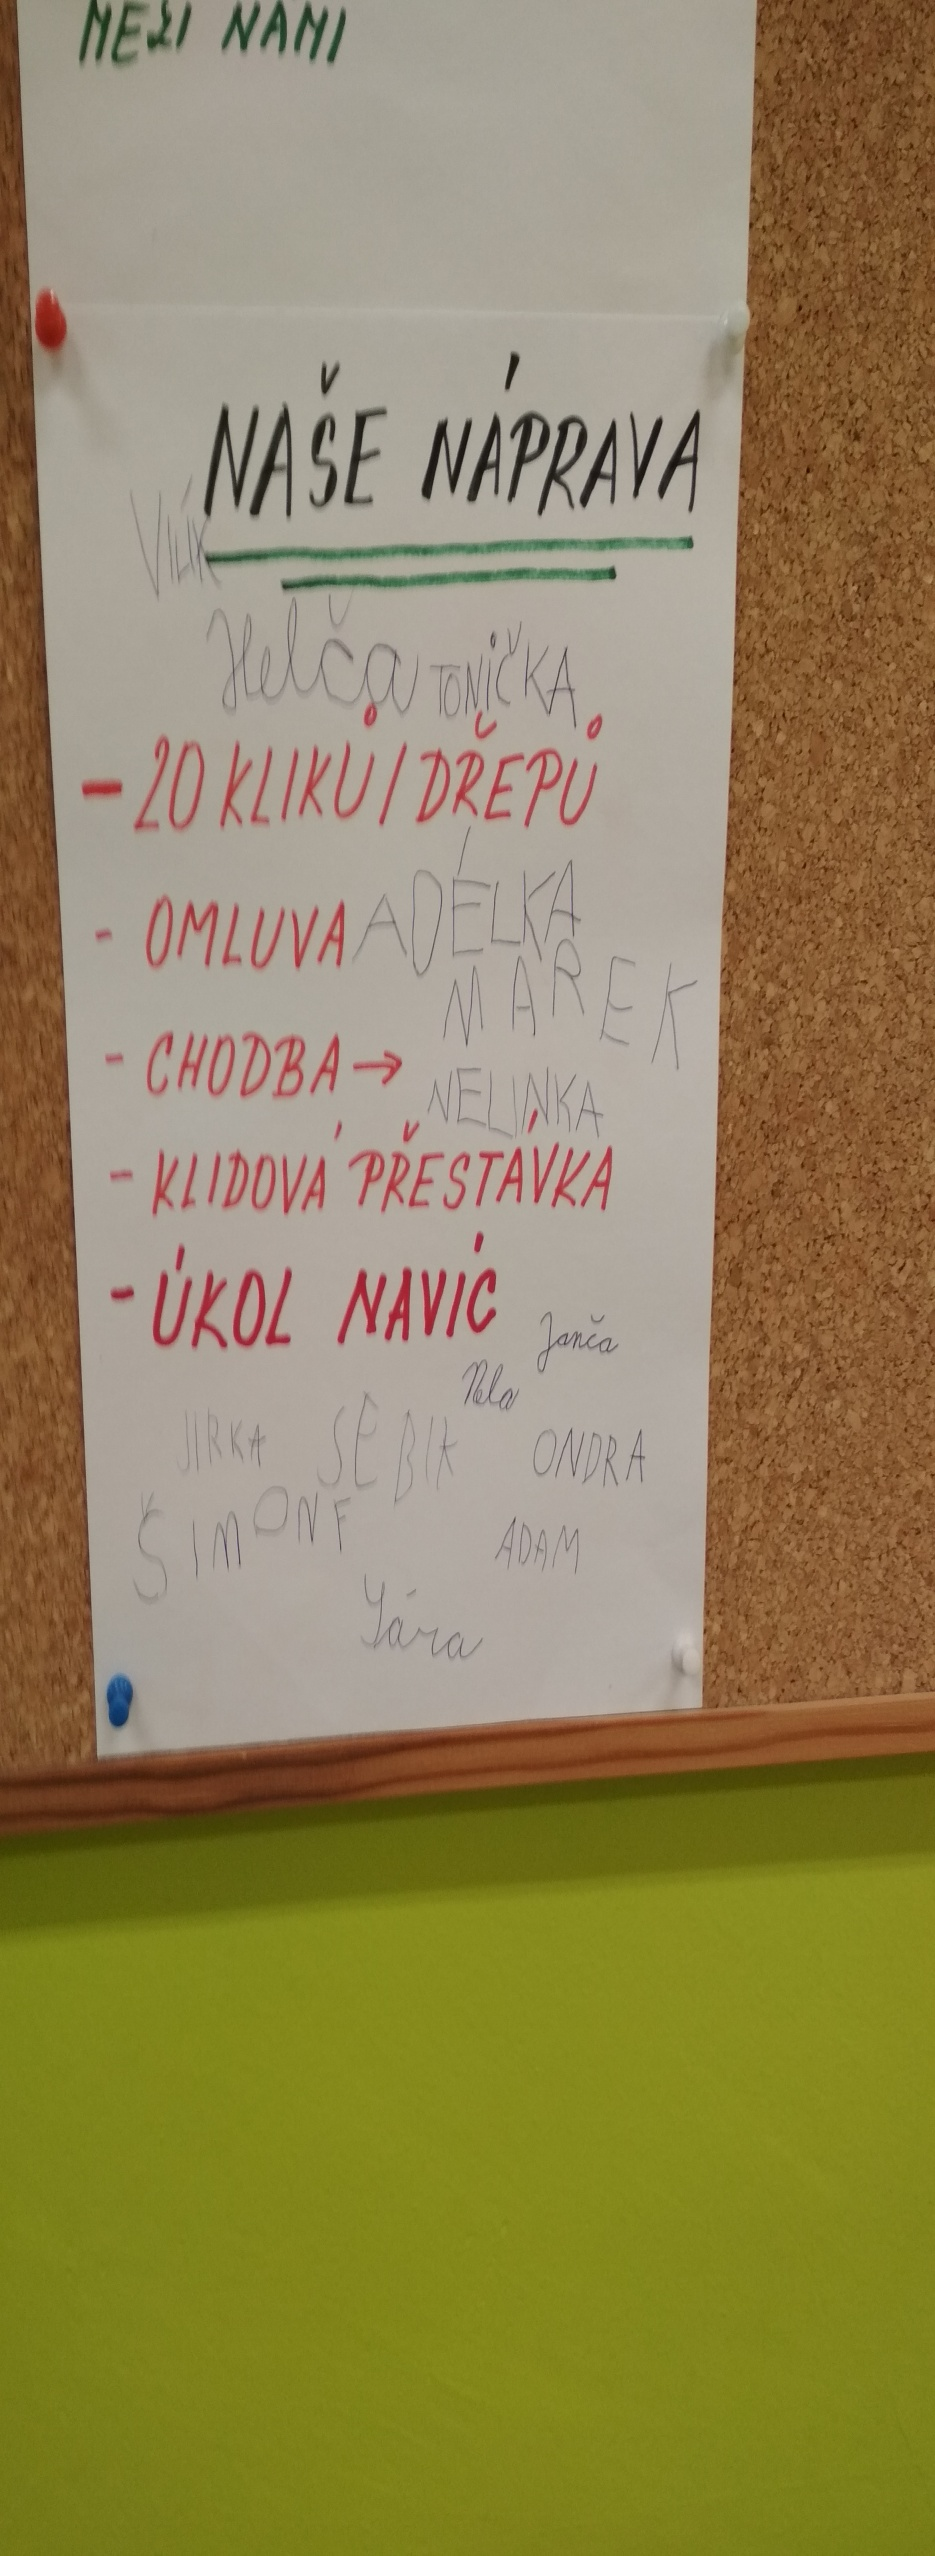 MEZI NAMI
NAŠE NÁPRAVA
VILÍK
Helča TONIČKA
- 20 KLIKŮ / DŘEPŮ
- OMLUVA ADÉLKA
MAREK
- CHODBA →
NELINKA
- KLIDOVÁ PŘESTÁVKA
- ÚKOL NAVÍC
Janča
Nela
JIRKA SEBIK ONDRA
ŠIMON F
ADAM
Yára